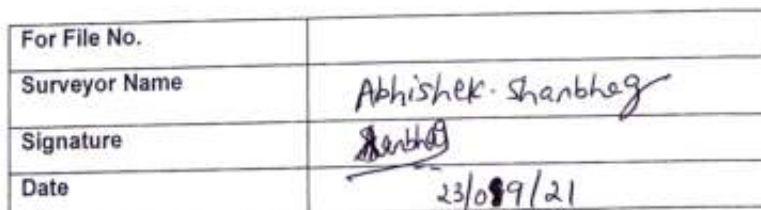 For File No.
Surveyor Name Abhishek. Shanbhag
Signature
Date 23/09/21